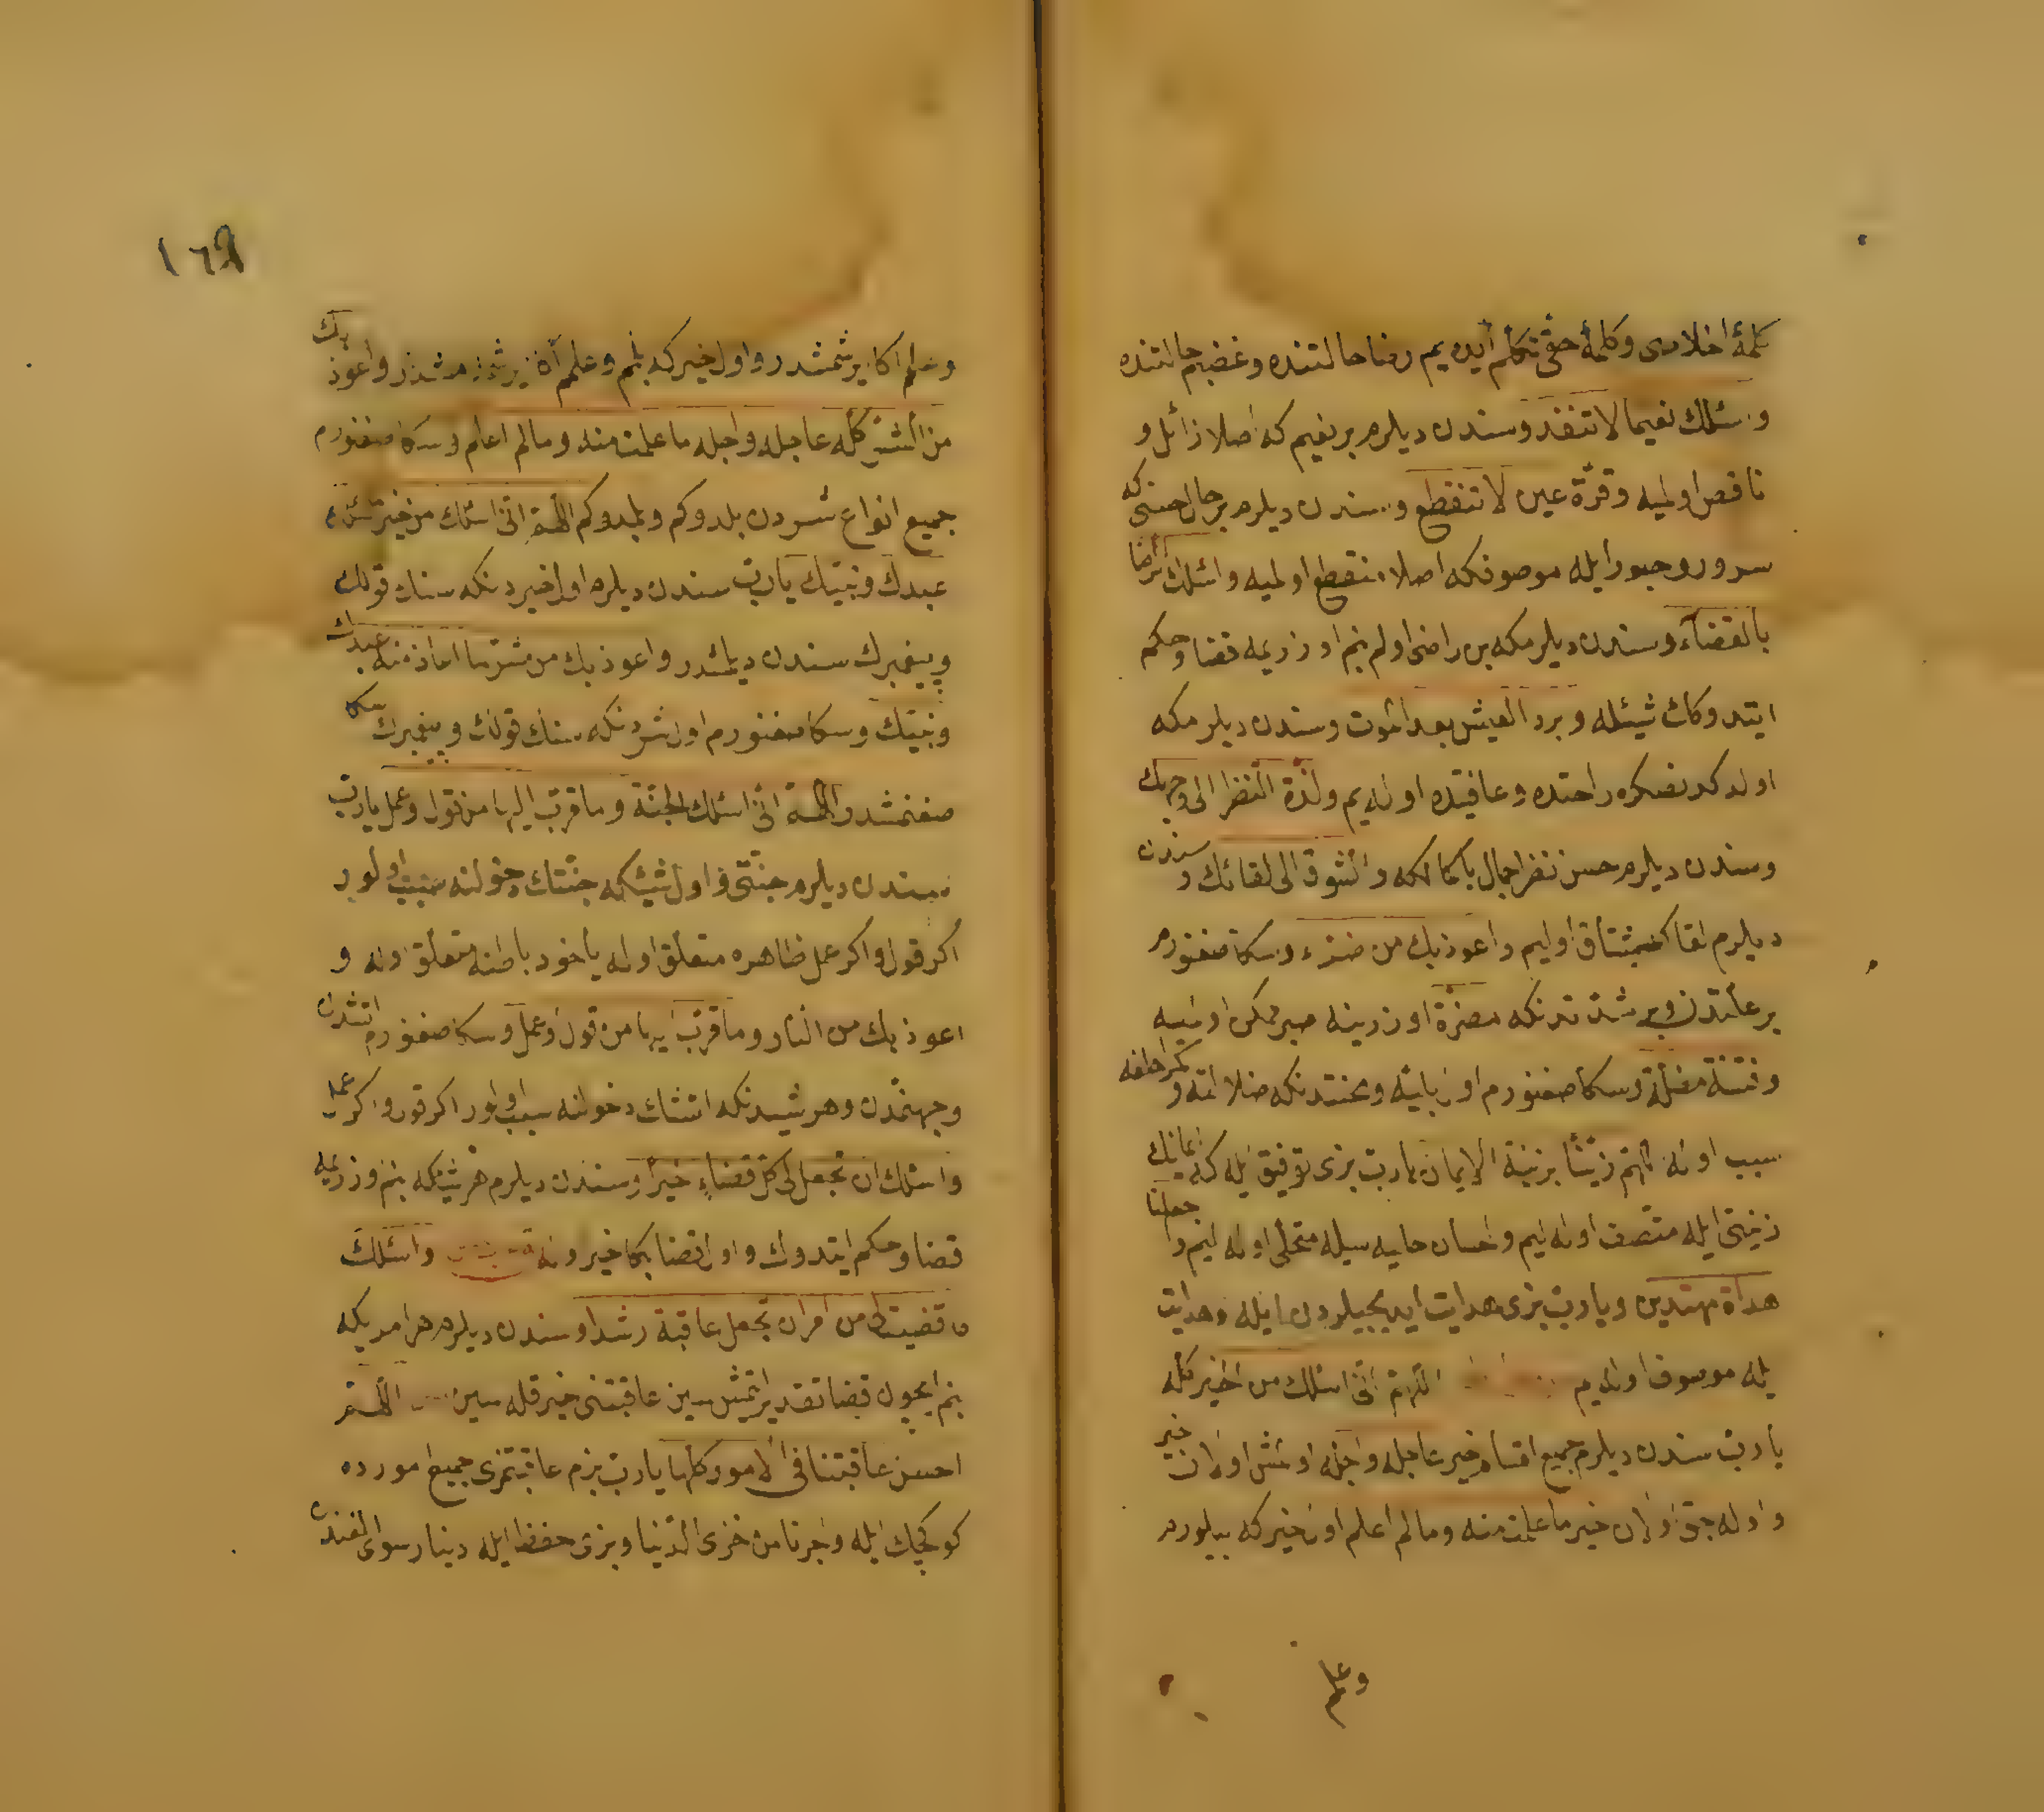 كلمۀ اخلاصى وكلمۀ حقى تكلم ايده يم رضا حالتنده وغضبم حالتنده
واسئلك نعيما لا تنفد وسندن ديلرم بر نعيم كه اصلا زائل و
ناقص اولميه وقرة عين لا تنقطع وسندن ديلرم بر حال حسنى كه
سرور وحبور ايله موصوفكه اصلا منقطع اولميه واسئلك الرضا
بالقضاء وسندن ديلرمكه بن راضى اولم بنم اوزريمه قضا وحكم
ايتدوكك شيئله وبرد العيش بعد الموت وسندن ديلرمكه
اولدكدنصكره راحتده وعافيتده اوله يم ولذة النظر الى وجهك
وسندن ديلرم حسن نظر جمال باكمالكه والشوق الى لقائك وسندن
ديلرم لقاكه مشتاق اوليم واعوذ بك من ضراء وسكا صغنورم
بر علتدن وبر شدتدنكه مضرة اوزرينه صبر ممكن اولميه
وفتنة مضلة وسكا صغنورم اول بليه ومحنتدنكه ضلالته و
سبب اوله اللهم زينا بزينة الايمان يارب بزى توفيق ايله كه ايمانك
زينتى ايله متصف اوله ليم واحسان حليه سيله متحلى اوله ليم واجعلنا
هداة مهتدين ويارب بزى هدايت ايديجيلردن ايله وهدايت
يله موصوف اوله يم اللهم انى اسئلك من الخير كله
يارب سندن ديلرم جميع اقسام خير عاجله واجله اولمش اولان خير
واوله جق اولان خير ما علمت منه وما لم اعلم اول خير كه بيلورم
وعلم
١٦٩
وعلم اكا يرشمشدر واول خير كه بلمم وعلمم اكا يرشمه مشدر واعوذ بك
من الشر كله عاجله واجله ما علمت منه وما لم اعلم وسكا صغنورم
جميع انواع شردن بلدوكم وبلمدوكم اللهم انى اسئلك من خير ما سئلك
عبدك ونبيك يارب سندن ديلرم اول خيردنكه سنك قولك
وپيغمبرك سندن ديلمشدر واعوذ بك من شر ما اعاذ منه عبدك
ونبيك وسكا صغنورم اول شردنكه سنك قولك وپيغمبرك سكا
صغنمشدر اللهم انى اسئلك الجنة وما قرب اليها من قول وعمل يارب
سندن ديلرم جنتى واول شيئكه جنتك دخولنه سبب اولور
اكر قول واكر عمل ظاهره متعلق اوله ياخود باطنه متعلق اوله و
اعوذ بك من النار وما قرب اليها من قول وعمل وسكا صغنورم اتشدن
وجهنمدن وهر شيدنكه اتشك دخولنه سبب اولور اكر قول واكر عمل
واسئلك ان تجعل لى كل قضاء خيرا وسندن ديلرم هر شيئكه بنم اوزريمه
قضا وحكم ايتدوك واول قضا بكا خير اوله واسئلك
ما قضيت لى من امر ان تجعل عاقبة رشدا وسندن ديلرم هر امريكه
بنم ايچون قضا تقدير ايتمش سين عاقبتنى خير قله سين اللهم
احسن عاقبتنا فى الامور كلها يارب بزم عاقبتمزى جميع امورده
كوكچك ايله واجرنا من خزى الدنيا وبزى حفظ ايله دنيا رسوايلغندن